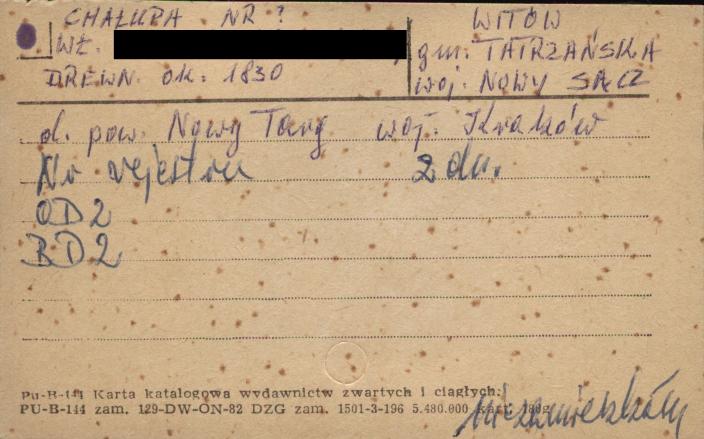 CHAŁUPA NR ?
WITÓW
WŁ.
gm. TATRZAŃSKA
DREWN. OK. 1830
woj. NOWY SĄCZ
d. pow. Nowy Targ woj. Kraków
Nr rejestru z dn.
OD2
BD2
PU-B-144 Karta katalogowa wydawnictw zwartych i ciągłych.
PU-B-144 zam. 129-DW-ON-82 DZG zam. 1501-3-196 5.480.000 kart. 180g
niezamieszkały